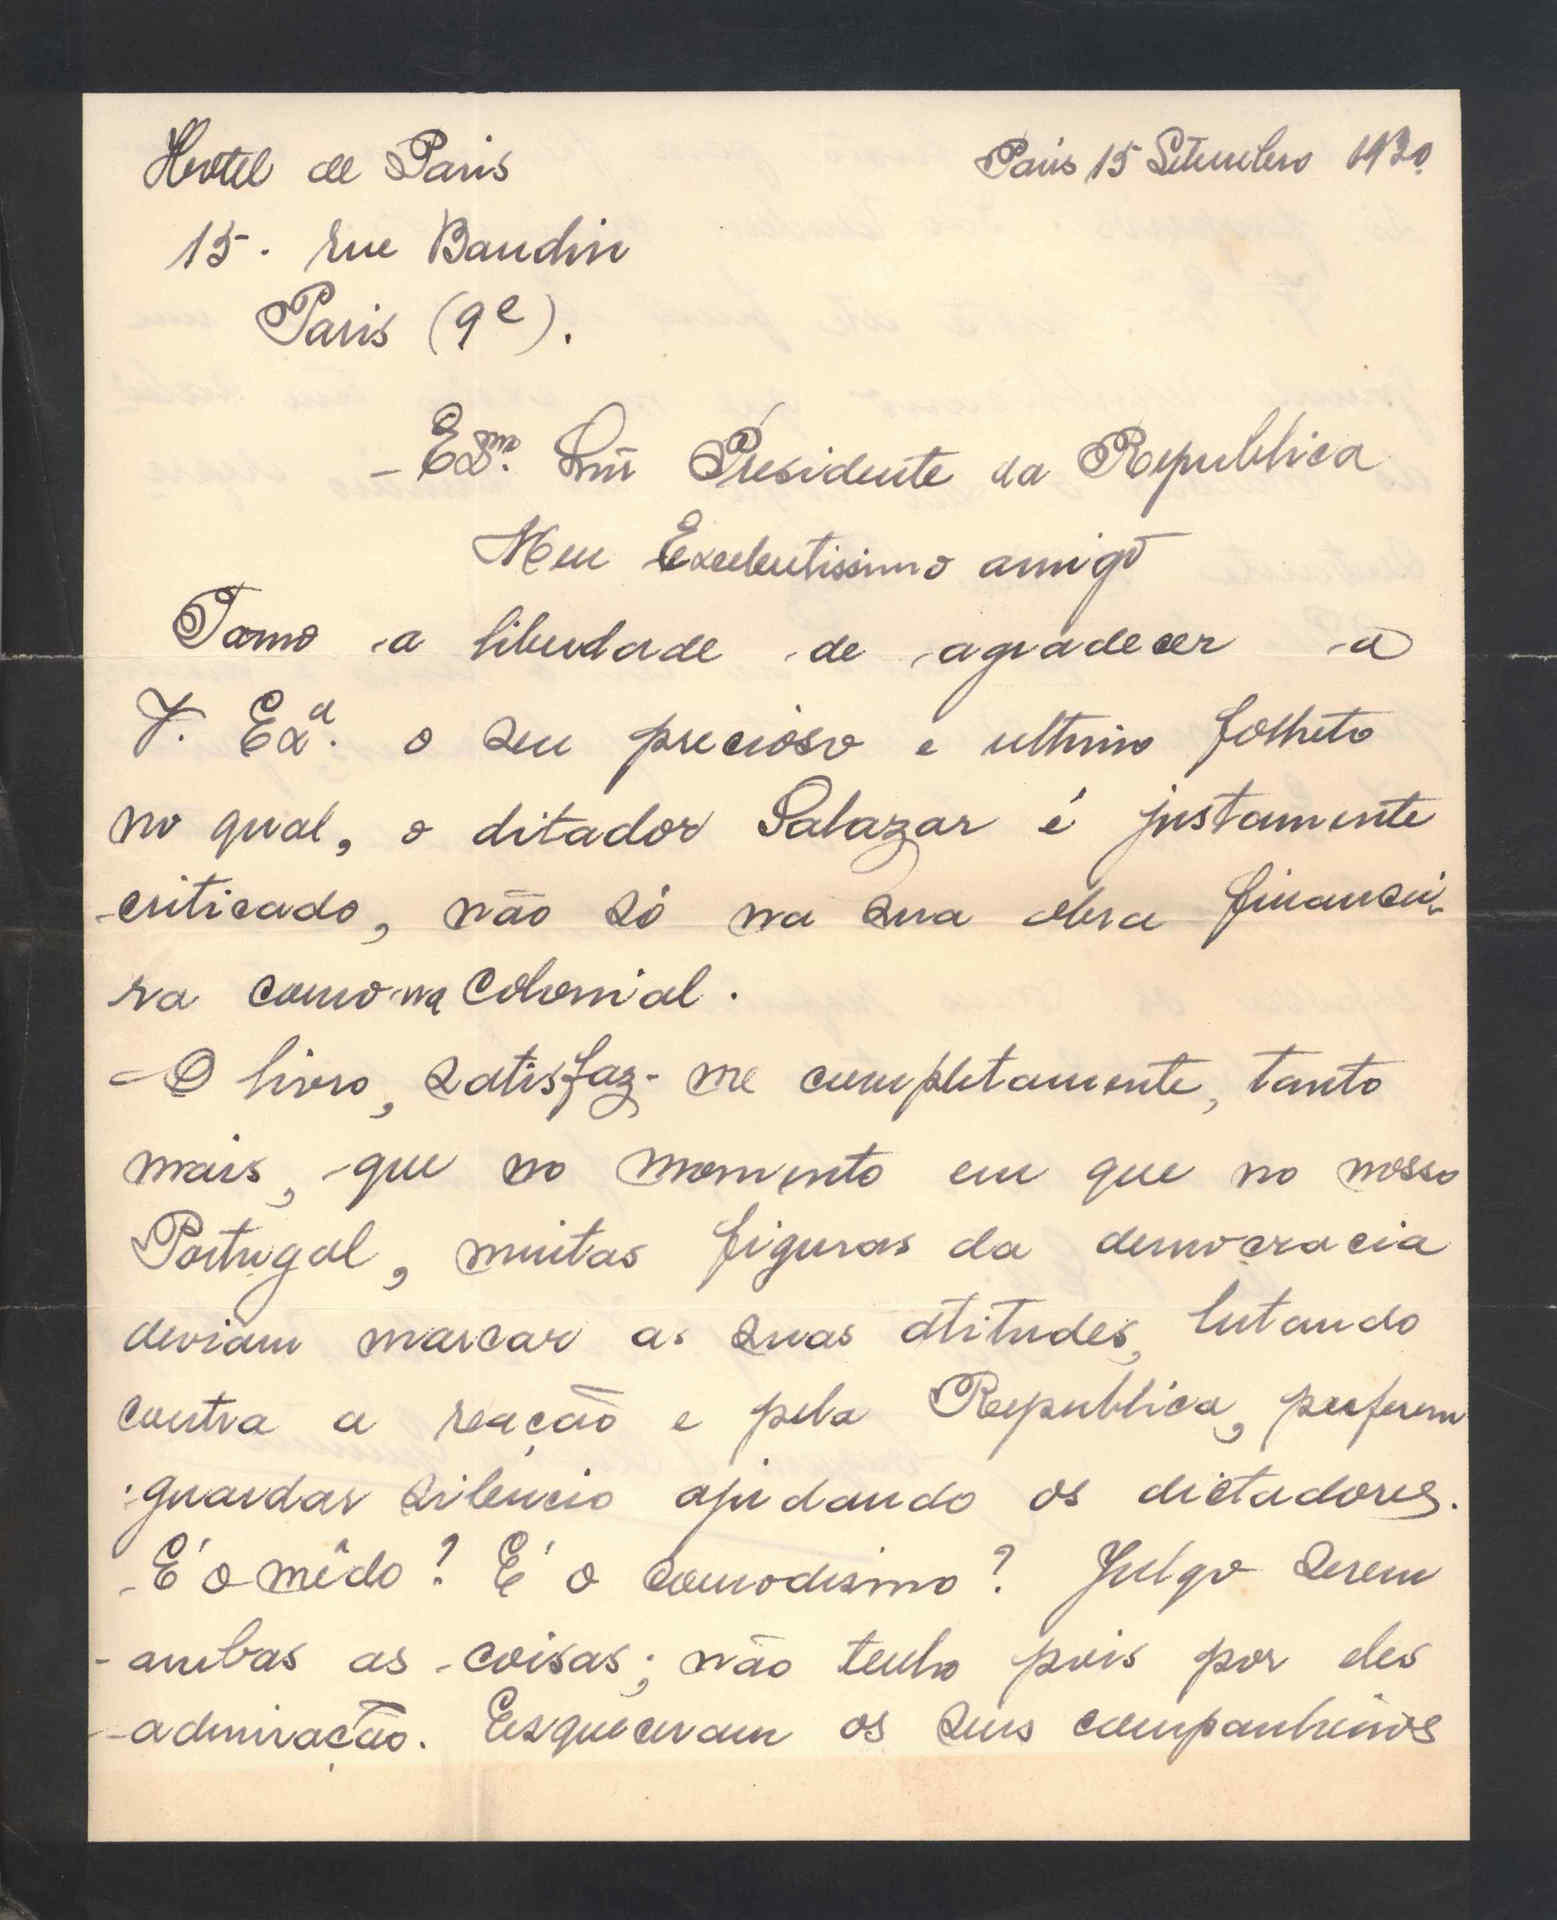 Hotel de Paris
Paris 15 Setembro 1930.
15. rue Baudin
Paris (9e).
Exmo. Snr Presidente da Republica
Meu Excelentissimo amigo
Tomo a liberdade de agradecer a
V. Exa. o seu precioso e ultimo folheto
no qual, o ditador Salazar é justamente
criticado, não só na sua obra financei-
ra como na Colonial.
O livro, satisfaz-me completamente, tanto
mais, que no momento em que no nosso
Portugal, muitas figuras da democracia
deviam marcar as suas atitudes, lutando
contra a reação e pela Republica, preferem
guardar silêncio ajudando os dictadores.
É o mêdo? É o comodismo? Julgo serem
ambas as coisas; não tenho pois por eles
admiração. Esqueceram os seus companheiros